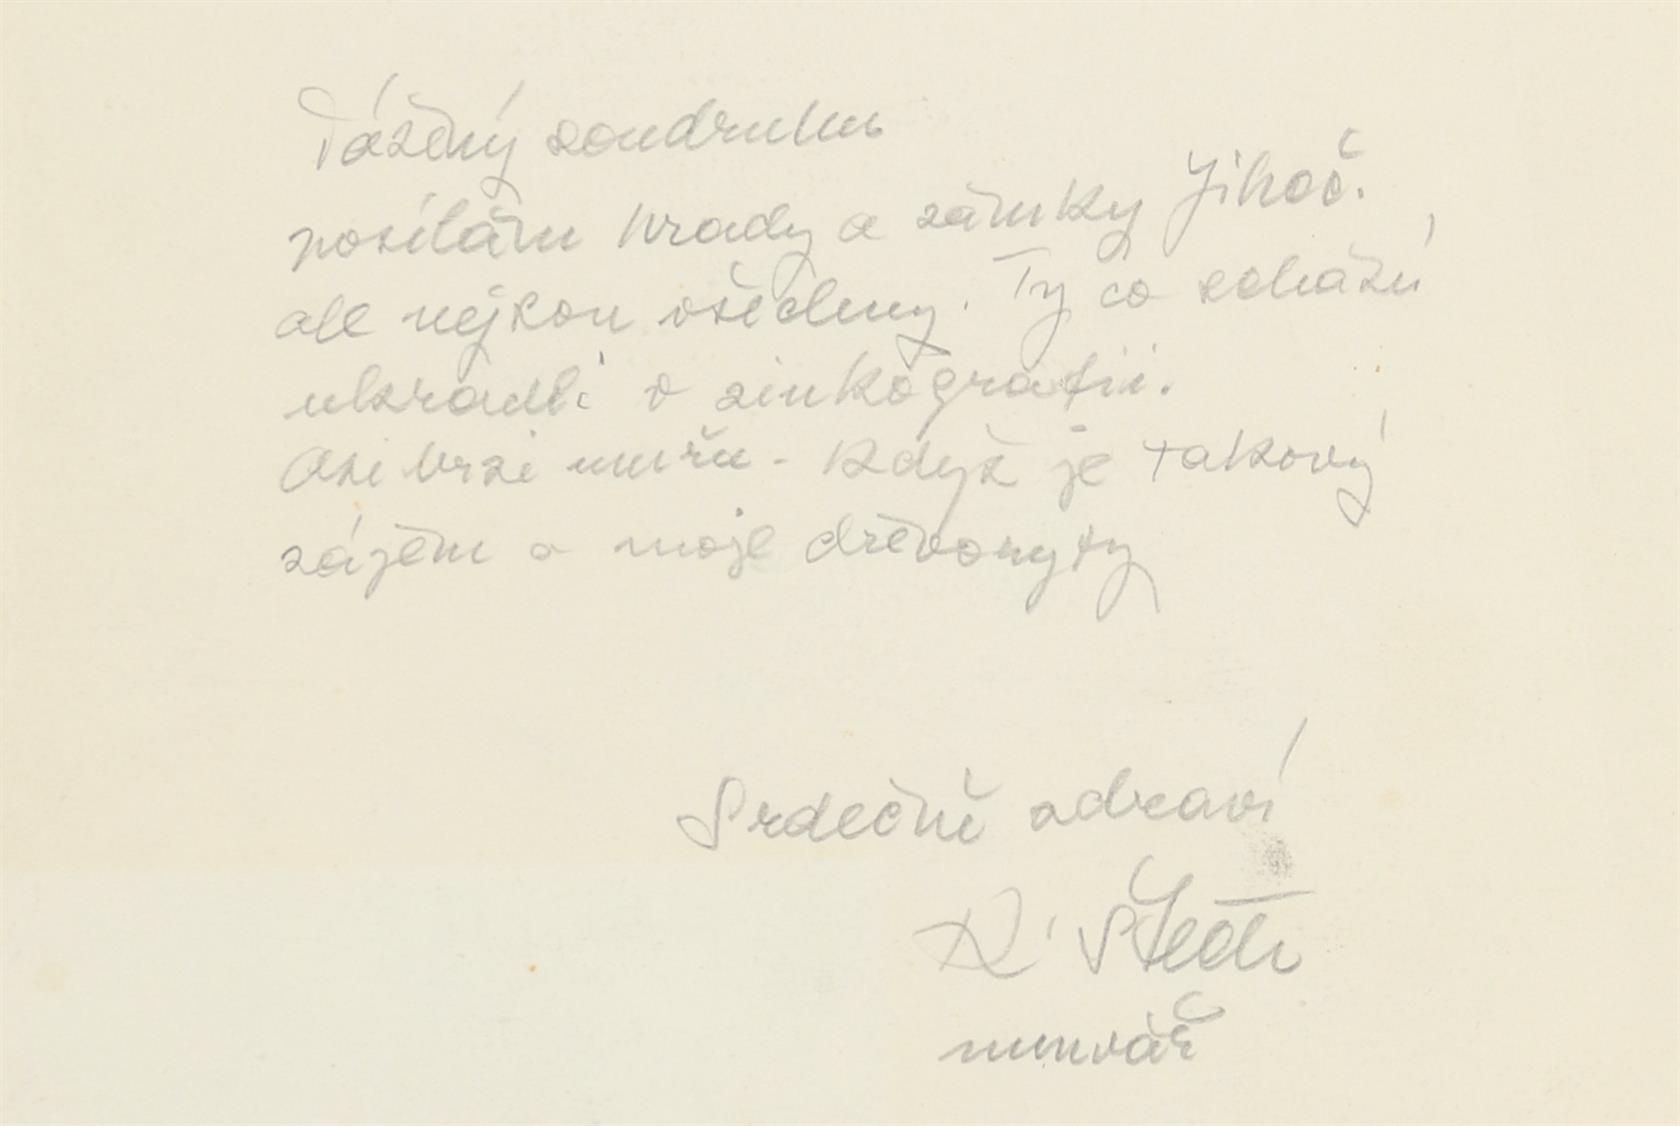 Vážený soudruhu
posílám hrady a zámky Jihoč.
ale nejsou všechny. Ty co schází
ukradli v zinkografii.
Asi brzi umřu - když je takový
zájem o moje dřevoryty
Srdečně zdraví
K. Štech